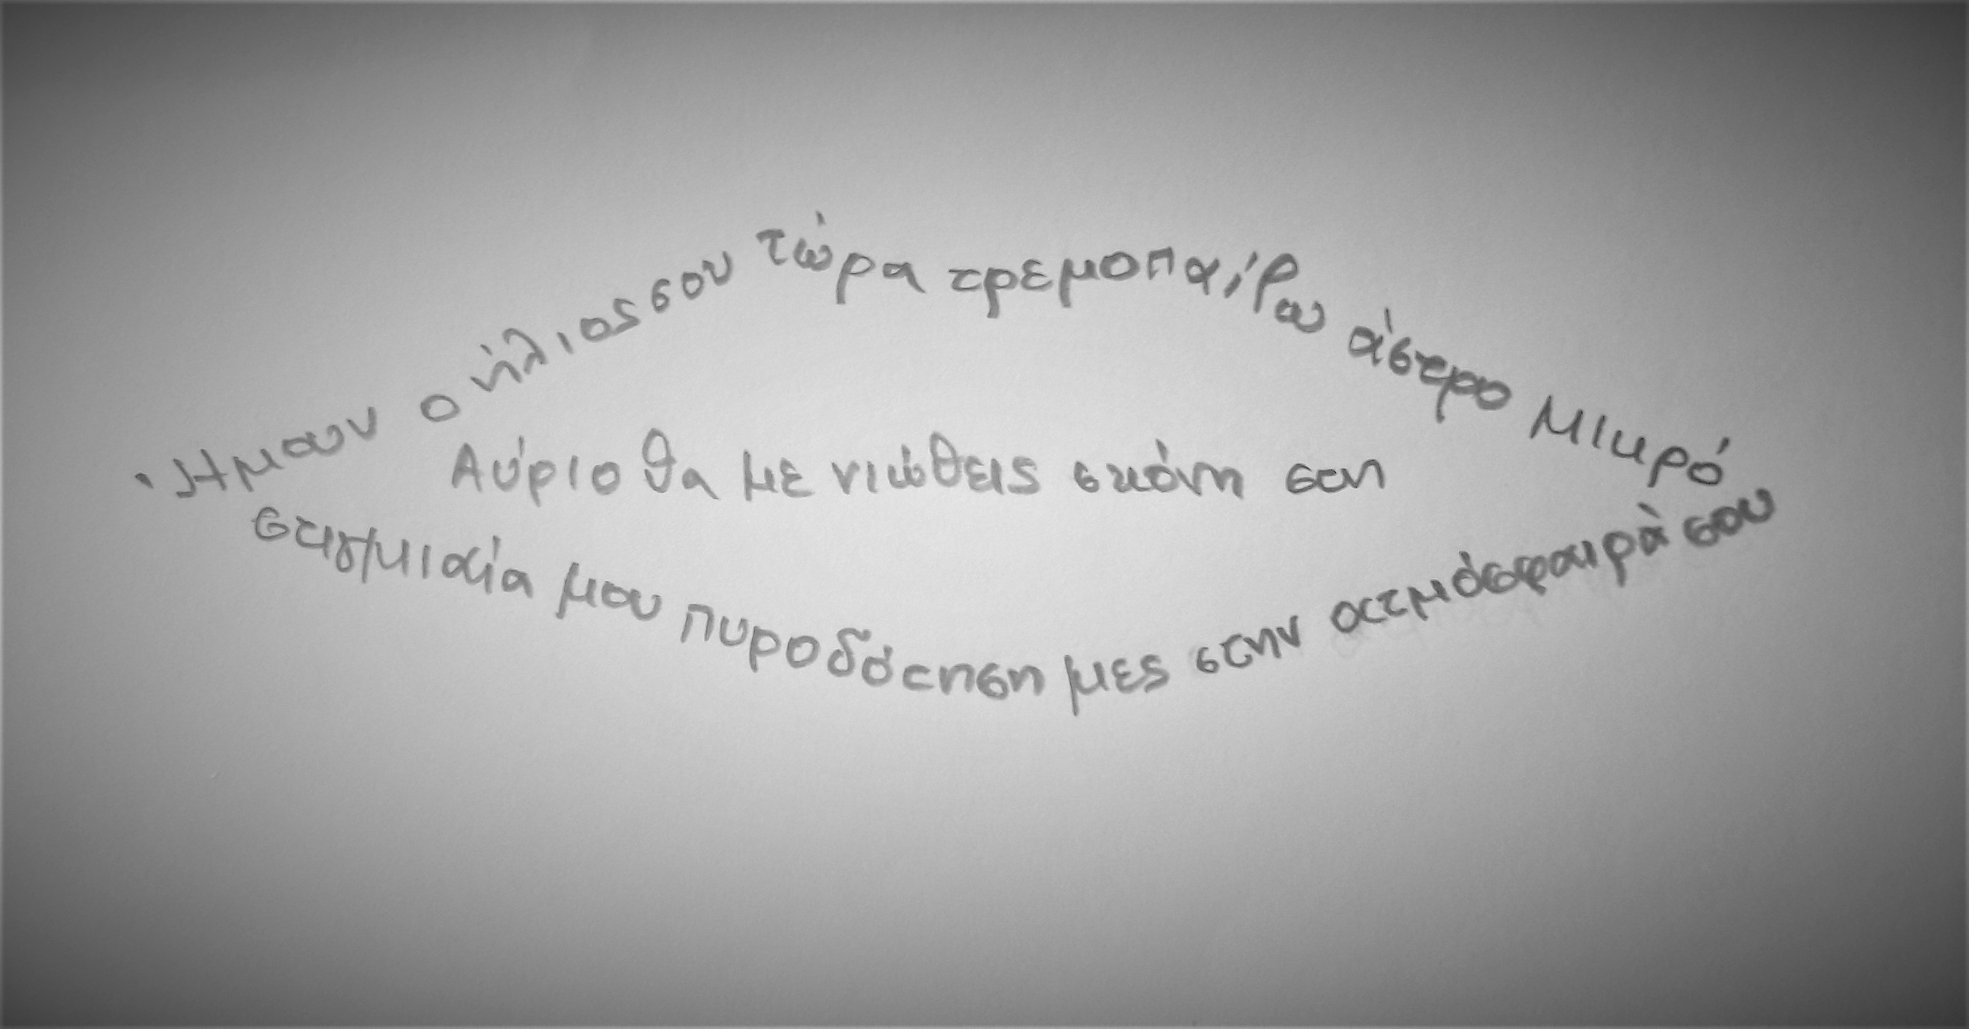 Ήμουν ο ήλιος σου τώρα τρεμοπαίρω άστρο μικρό
Αύριο θα με νιώθεις σκόνη στη
στιγμιαία μου πυροδότηση μες στην ατμόσφαιρά σου